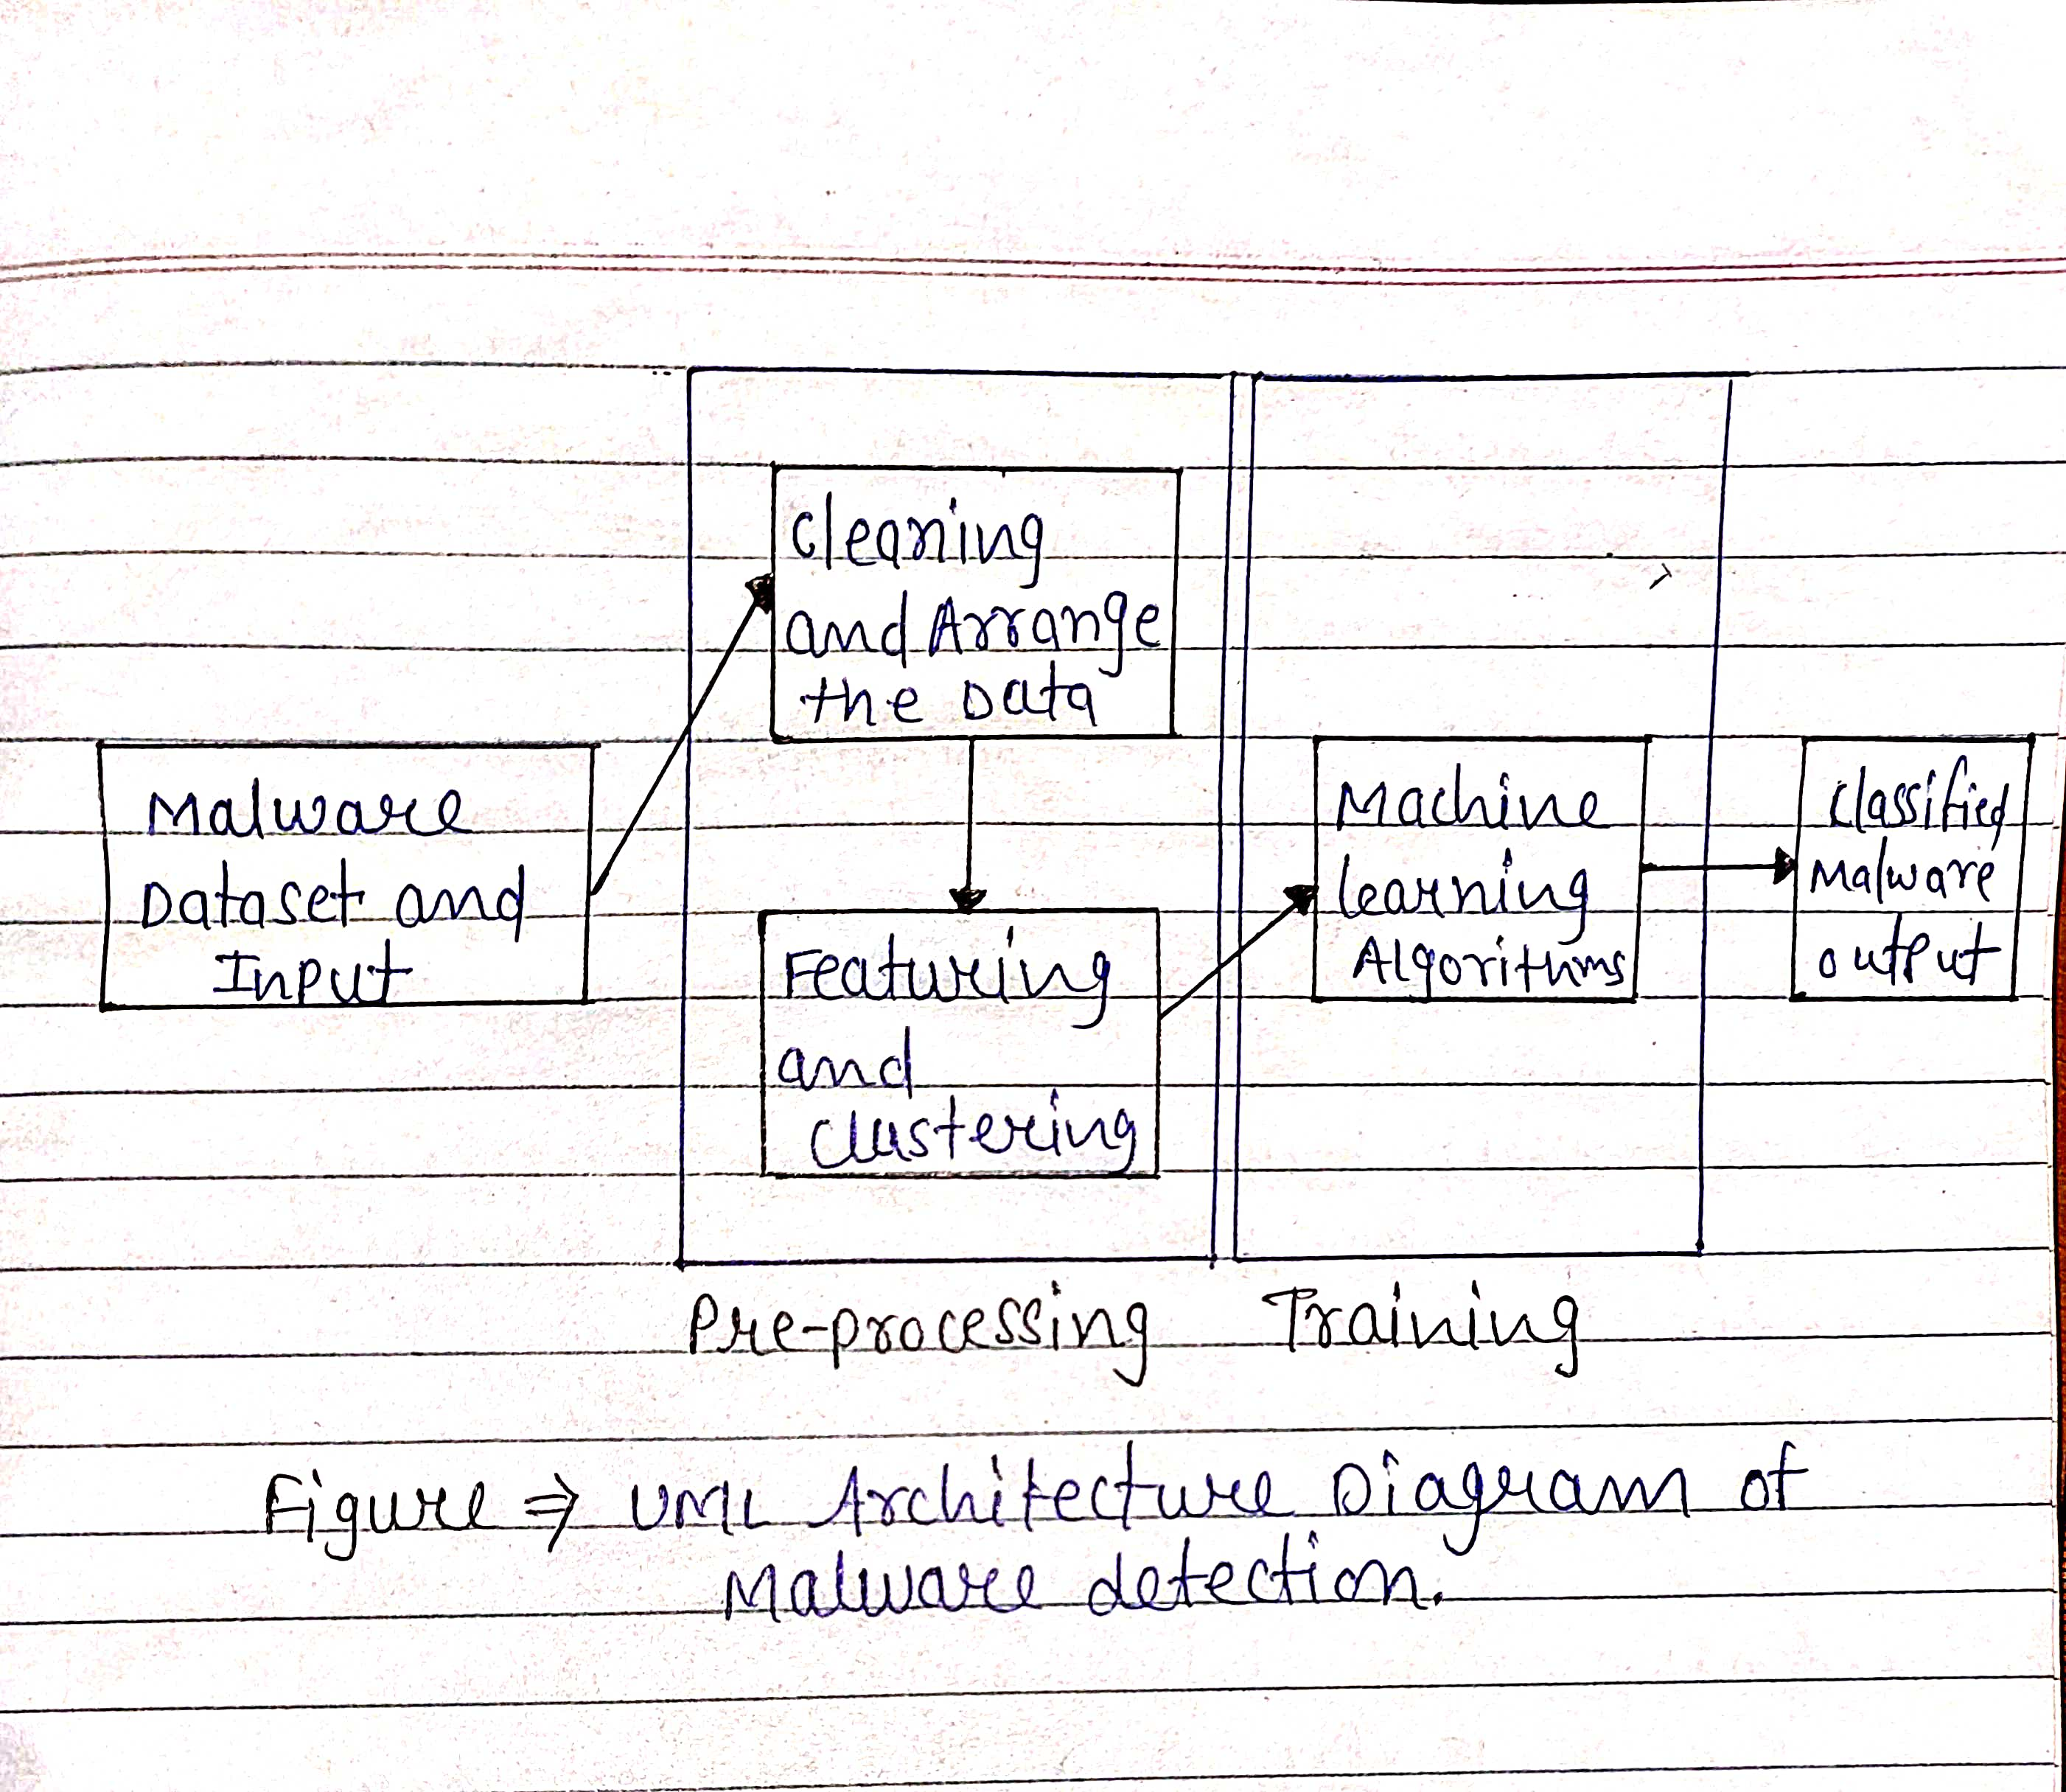 Cleaning
and Arrange
the Data
Malware
Dataset and
Input
Featuring
and
clustering
Machine
learning
Algorithms
Classified
Malware
output
Pre-processing
Training
Figure ⇒ UML Architecture Diagram of
Malware detection.